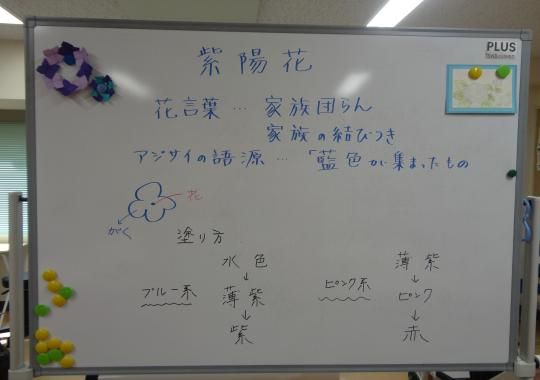 紫陽花
PLUS
花言葉 … 家族団らん
家族の結びつき
アジサイの語源 … 「藍色が集まったもの
花
がく
塗り方
水色
↓
ブルー系 薄紫
↓
紫
薄紫
↓
ピンク系 ピンク
↓
赤